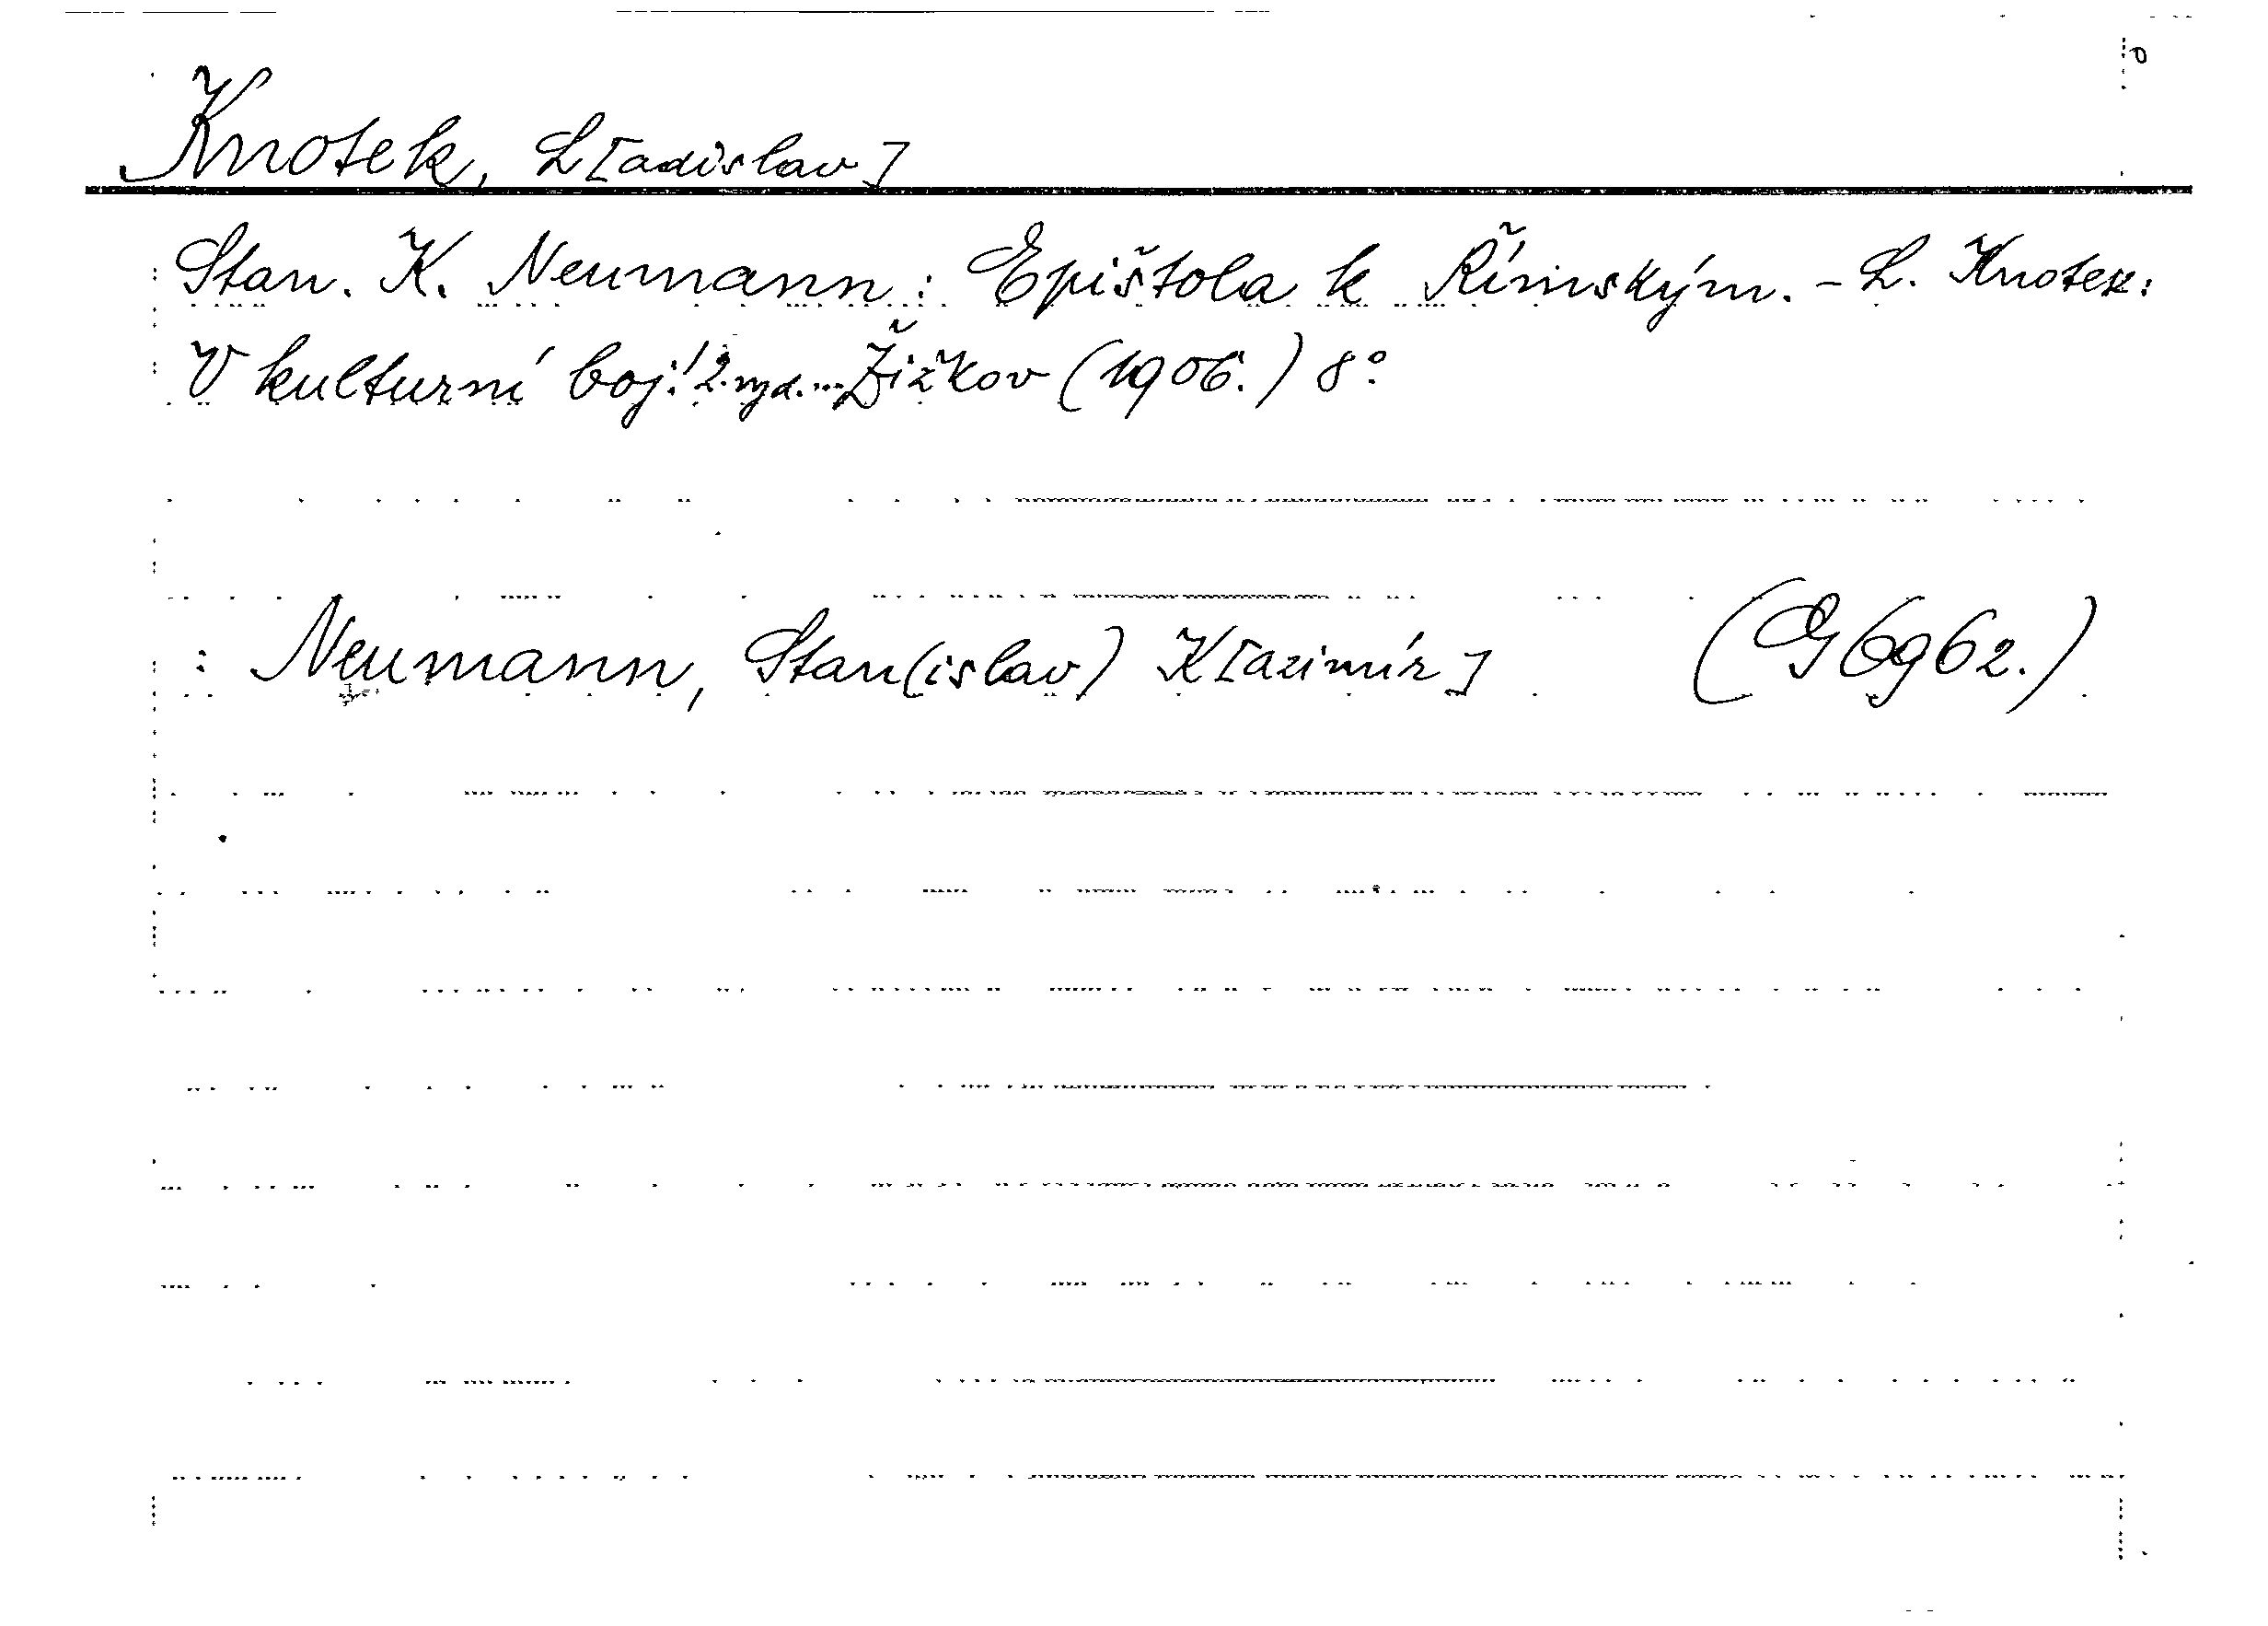 Knotek, L[adislav]
Stan. K. Neumann: Epištola k Římským. - L. Knotek:
V kulturní boj! 2. vyd. ... Žižkov (1906.) 8°.
: Neumann, Stan(islav) K[azimír] (G 6962.)